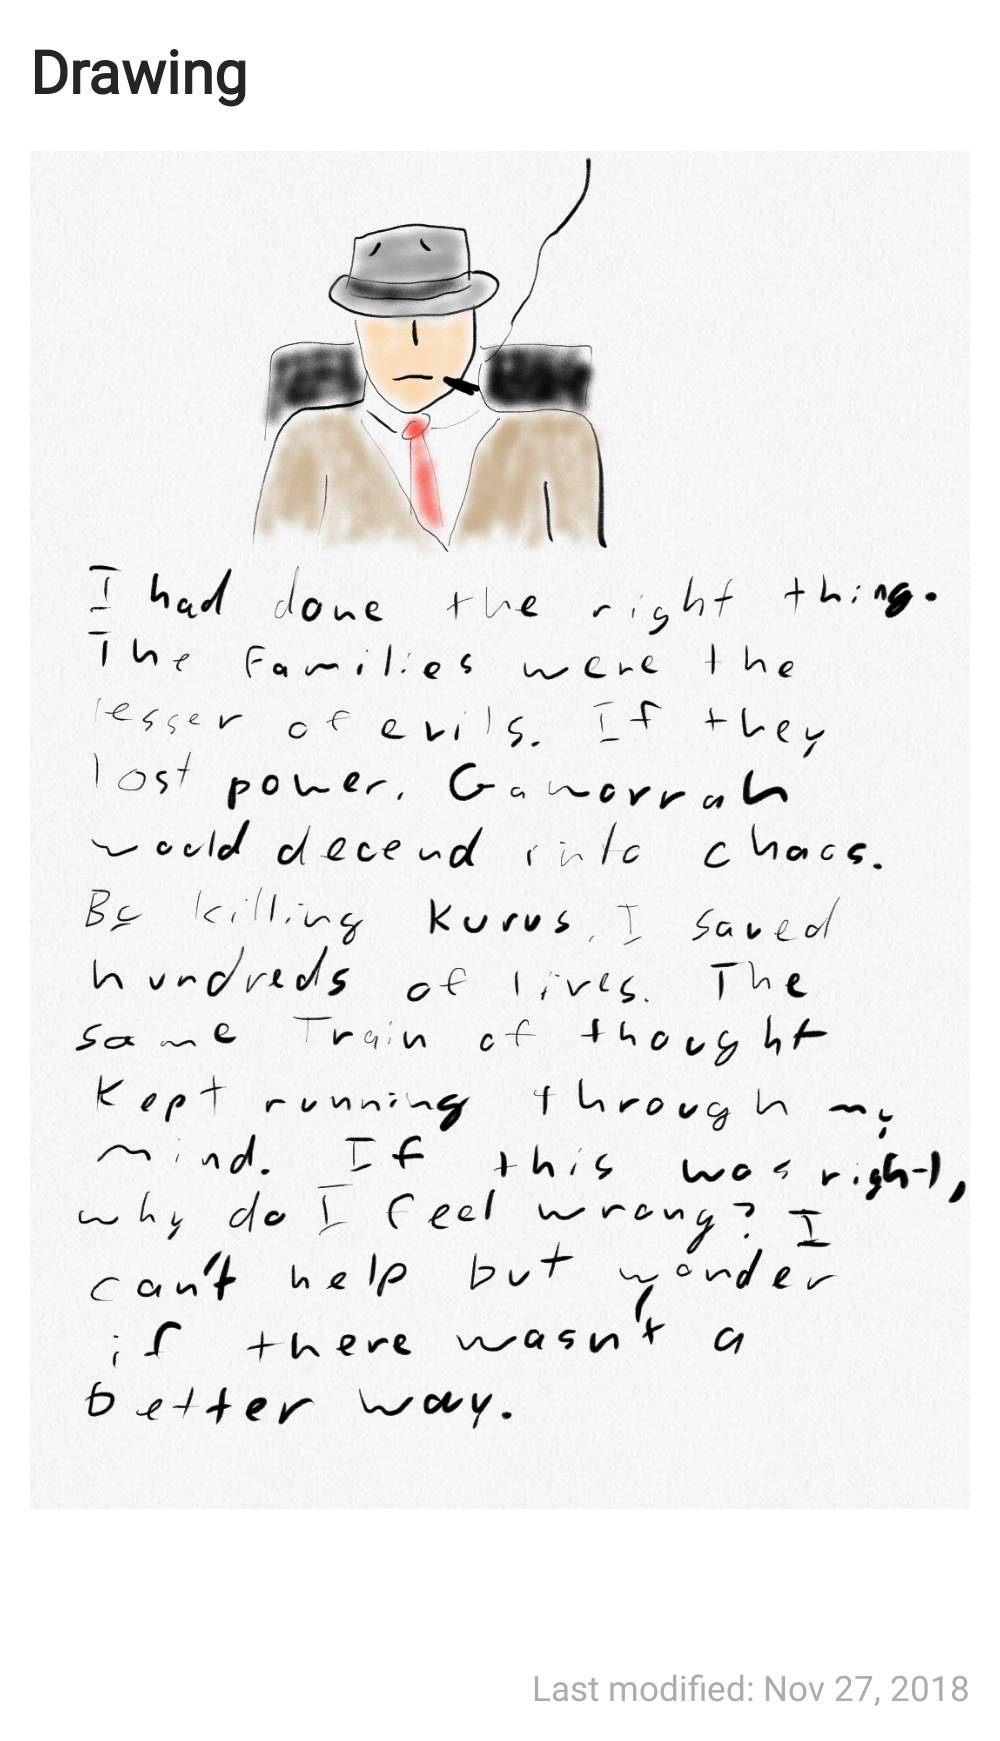 Drawing
I had done the right thing.
The Families were the
lesser of evils. If they
lost power, Gamorrah
would decend into chaos.
By killing Kurus, I saved
hundreds of lives. The
same Train of thought
Kept running through my
mind. If this was right,
why do I feel wrong? I
can't help but wonder
if there wasn't a
better way.
Last modified: Nov 27, 2018